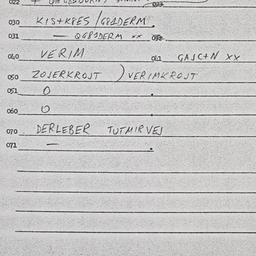 022
030 KIS+KRES / GØ1DERM.
031 — OGØ1DERM xx
040 VERIM 041 GAJC+N xx
050 ZOJERKROJT ) VERIMKROJT
051 O .
060 O
070 DERLEBER TUTMIRVEJ
071 — .